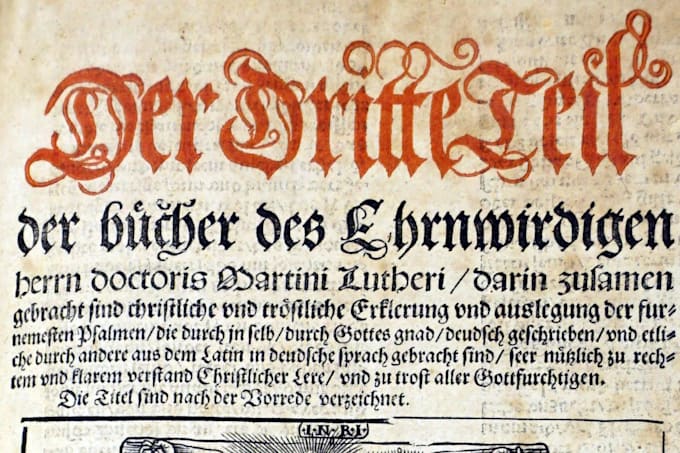 Der Dritte Teil
der bücher des Ehrnwirdigen
herrn doctoris Martini Lutheri / darin zusamen
gebracht sind christliche vnd tröstliche Erklerung vnd auslegung der fur-
nemesten Psalmen / die durch jn selb / durch Gottes gnad / deudsch geschrieben / vnd etli-
che durch andere aus dem Latin in deudsche sprach gebracht sind / seer nützlich zu rech-
tem vnd klarem verstand Christlicher Lere / vnd zu trost aller Gottfurchtigen.
Die Titel sind nach der Vorrede verzeichnet.
·I·N·R·I·